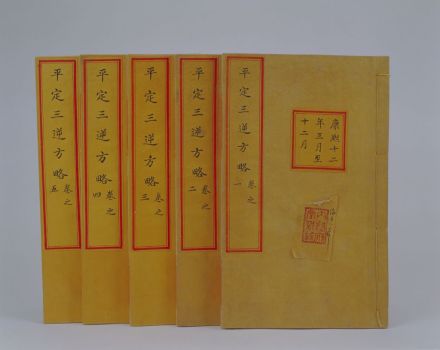 平定三逆方略卷之一
康熙十二
年三月至
十二月
平定三逆方略卷之二
平定三逆方略卷之三
平定三逆方略卷之四
平定三逆方略卷之五